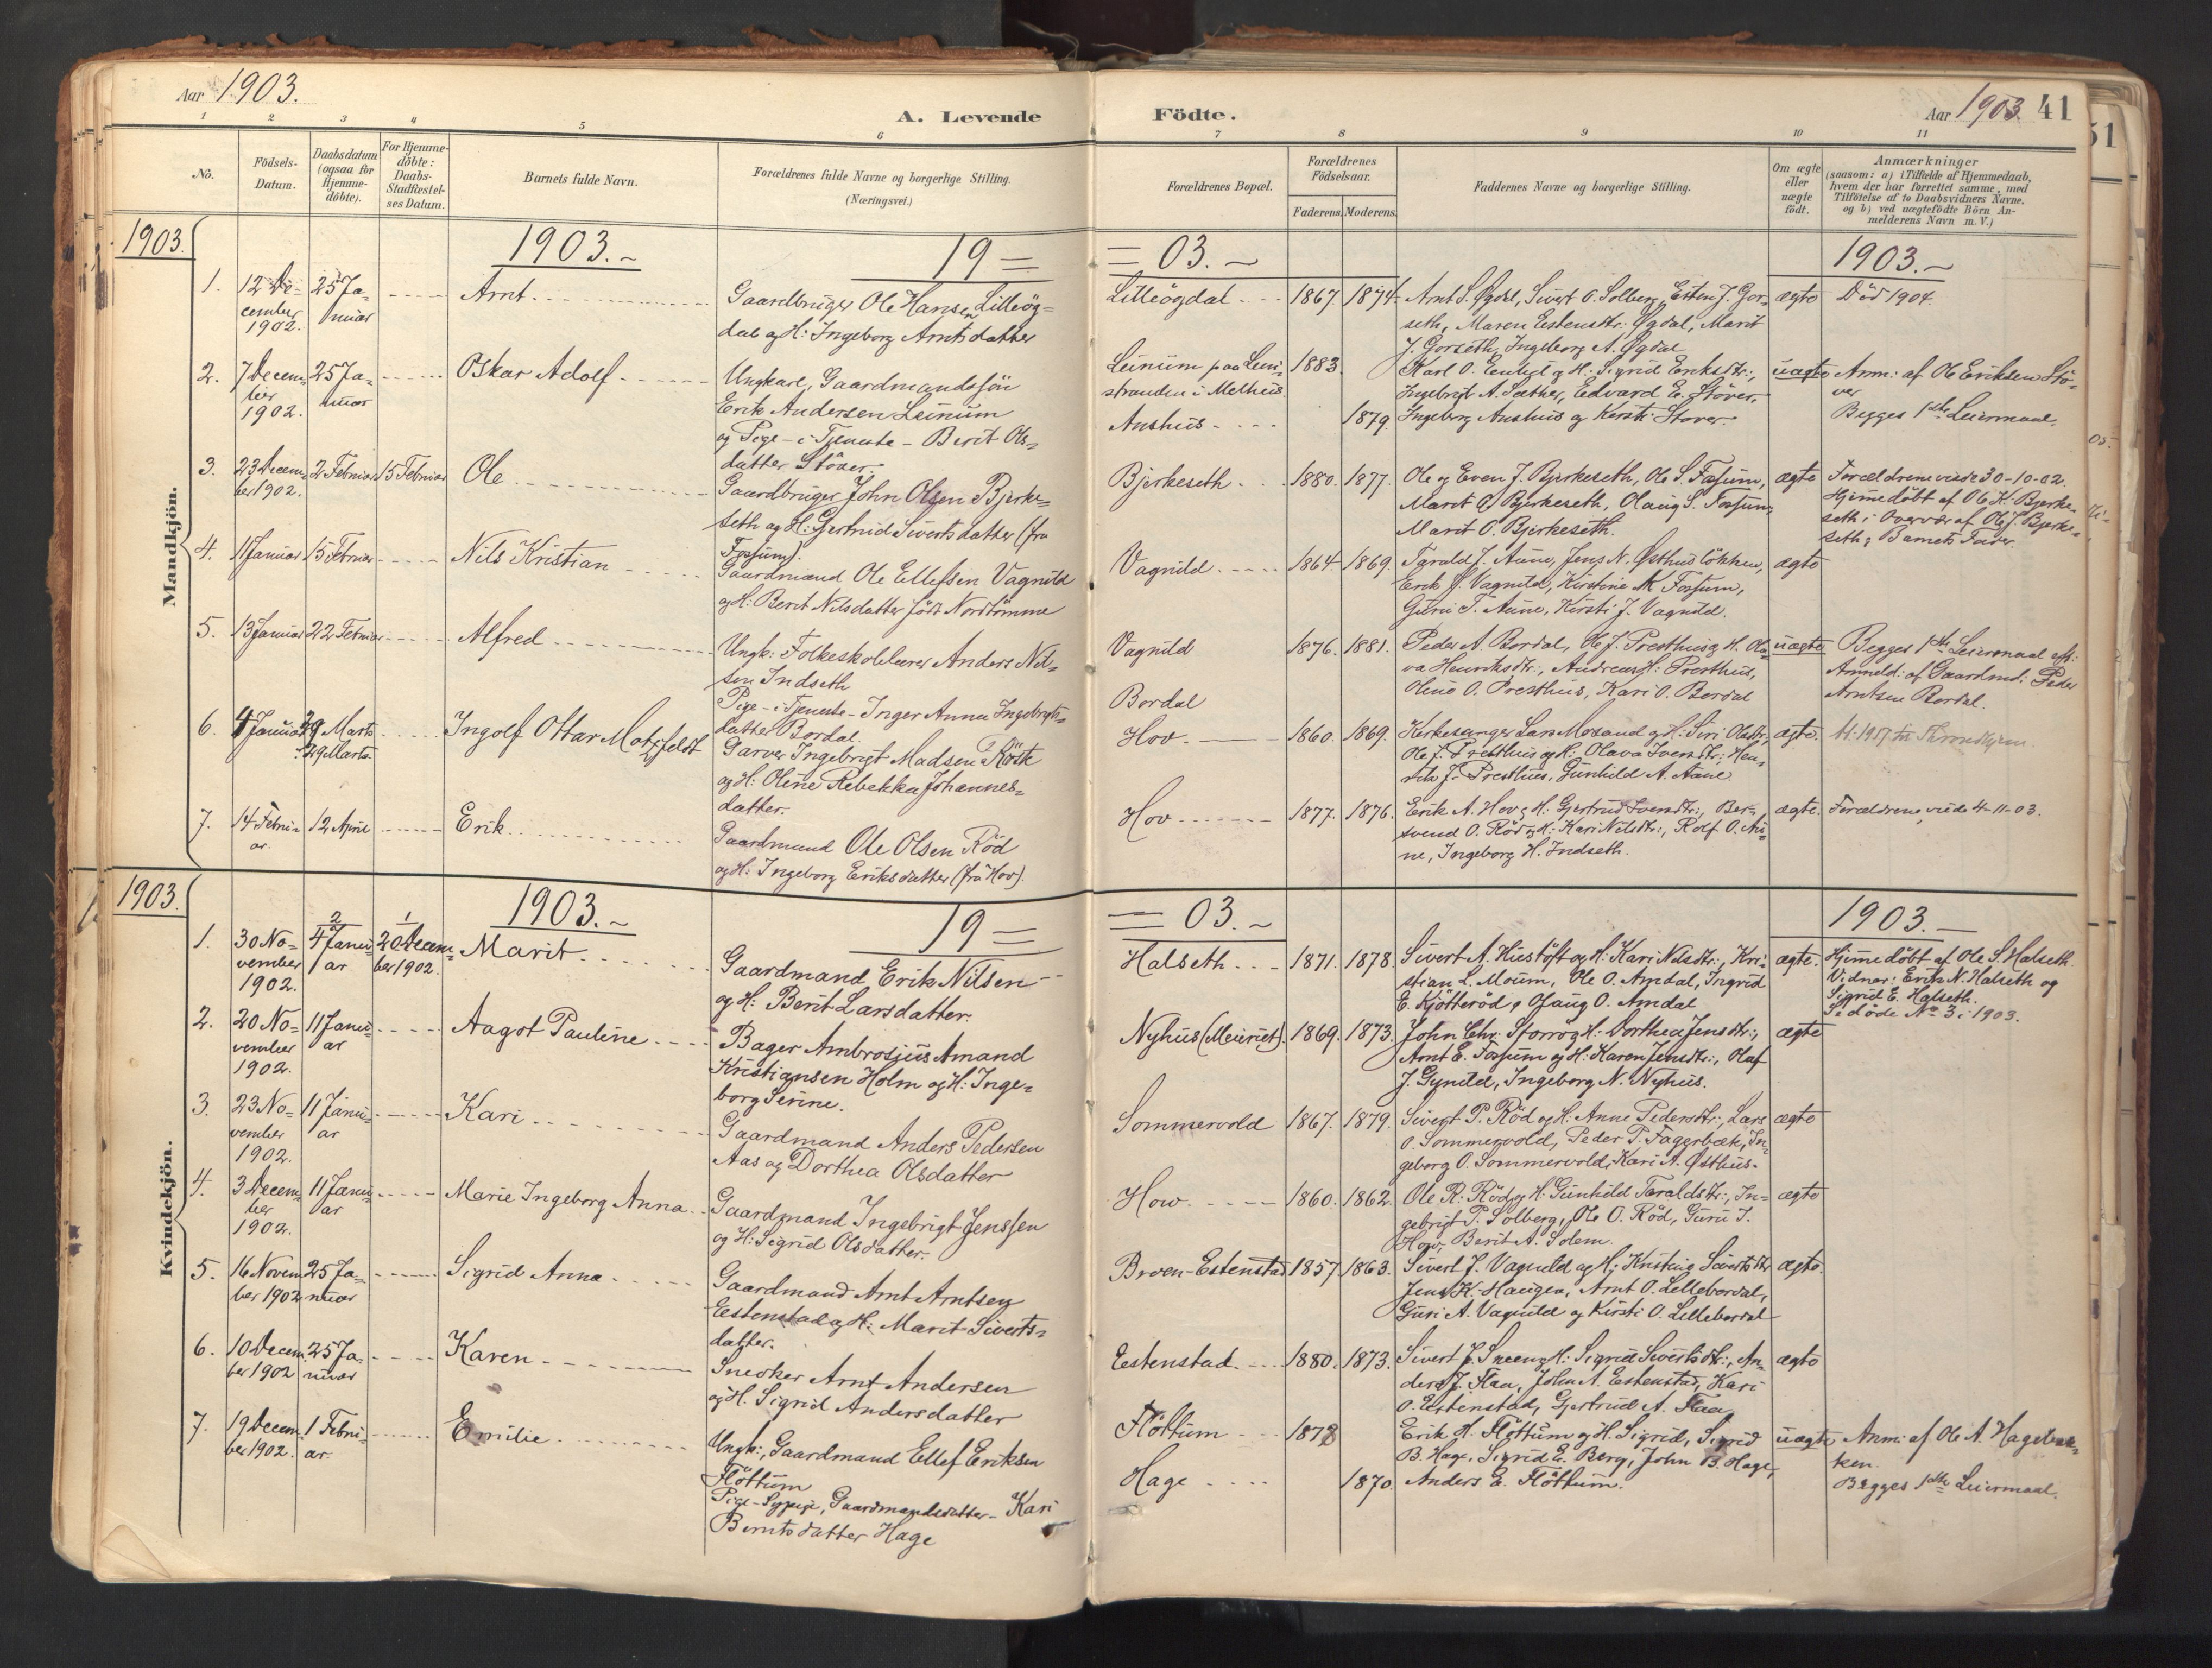 Aar 1903.
A. Levende
Födte.
Aar 1903. 41
51
1 2 3 4 5 6 7 8 9 10 11
No.
Födsels-
Datum.
Daabsdatum
(ogsaa for
Hjemme-
döbte).
For Hjemme-
döbte:
Daabs-
Stadfæstel-
ses Datum.
Barnets fulde Navn.
Forældrenes fulde Navne og borgerlige Stilling.
(Næringsvei.)
Forældrenes Bopæl.
Forældrenes
Födselsaar.
Faderens. Moderens.
Faddernes Navne og borgerlige Stilling.
Om ægte
eller
uægte
födt.
Anmærkninger
(saasom: a) i Tilfælde af Hjemmedaab,
hvem der har forrettet samme, med
Tilföielse af to Daabsvidners Navne.
og b) ved uægtefödte Börn An-
melderens Navn m. V.)
Mandkjön.
1903. 1903.- 19= =03.- 1903.-
1.
12 De-
cember
1902.
25 Ja-
nuar
Arnt
Gaardbruger Ole Hansen Lilleög=
dal og H: Ingeborg Arntsdatter
Lilleögdal
1867. 1874.
Arnt S. Øgdal, Sivert O. Solberg, Esten J. Gor-
seth, Maren Estensdtr: Øgdal, Marit
J. Gorseth, Ingeborg A. Øgdal
ægte
Död 1904.
2.
7 Decem-
ber
1902.
25 Ja-
nuar
Oskar Adolf
Ungkarl, Gaardmandssön
Erik Andersen Leinum
og Pige - i Tjeneste - Berit Ols-
datter Stöver.
Leinum paa Lein-
stranden i Melhus.
Aushus
1883.
1879.
Karl O. og H: Sigrid Eriksdtr:,
Ingebrigt A. Sæther, Edvard E. Stöver,
Ingeborg Aushus og Kirsti Stöver.
uægte
Anm: af Ole Eriksen Stö-
ver
Begges 1ste Leiermaal.
3.
23 Decem-
ber 1902.
2 Februar
15 Februar
Ole
Gaardbruger John Olsen Bjerke-
seth og H: Gjertrud Sivertsdatter (fra
Fossum).
Bjerkeseth
1880. 1877.
Ole og Even J. Bjerkeseth, Ole S. Fossum,
Marit O. Bjerkeseth, Olaug S. Fossum,
Marit O. Bjerkeseth.
ægte
Forældrene viede 30-10-02.
Hjemmedöbt af Ole K. Bjerke-
seth i Overvær af Ole J. Bjerke-
seth & Barnets Fader.
4.
11 Januar
15 Februar
Nils Kristian
Gaardmand Ole Ellefsen Vagnild
og H: Berit Nilsdatter födt Nordtömme
Vagnild
1864. 1869.
Tarald J. Aune, Jens N. Østhuslökken,
Erik J. Vagnild, Kirstine M. Fossum,
Guru T. Aune, Kirsti J. Vagnild.
ægte
5.
13 Januar
22 Februar
Alfred
Ungk: Folkeskolelærer Anders Nil-
sen Indseth
Pige - i Tjeneste - Inger Anna Ingebrigts-
datter Bordal.
Vagnild
Bordal
1876. 1881.
Peder A. Bordal, Ole J. Presthus og H. Ola-
va Henriksdtr:, Andreas H: Presthus,
Oline O. Presthus, Kari O. Bordal
uægte
Begges 1ste Leiermaal
Anmeldt: af Gaardmd: Peder
Arntsen Bordal.
6.
4 Januar
29 Marts
29 Marts
Ingolf Ottar Motzfeldt
Garver Ingebrigt Madsen Röstt
og H: Oline Rebekka Johannes-
datter.
Hov.
1860. 1869.
Kirkesanger Lars Moxand og H: Siri Olsdtr:,
Ole J. Presthus og H: Olava Iversdtr:, Hen-
rik J. Presthus, Gunhild A. Aune
ægte.
til Throndhjem.
7.
14 Febru-
ar.
12 April
Erik
Gaardmand Ole Olsen Röd
og H: Ingeborg Eriksdatter (fra Hov).
Hov
1877. 1876.
Erik A. Hov og H: Gjertrud Svendsdtr:, Ber-
svend O. Röd og H: Kari Nilsdtr:, Rolf O. Au-
ne, Ingeborg H. Indseth.
ægte.
Forældrene viede 4-11-03.
Kvindekjön.
1903. 1903.- 19= =03.- 1903.-
1.
30 No-
vember
1902.
2
4 Janu-
ar
1
20 Decem-
ber 1902.
Marit
Gaardmand Erik Nilsen
og H: Berit Larsdatter.
Halseth
1871. 1878.
Sivert A. Hustöft og H: Kari Nilsdtr:, Kri-
stian L. Moum, Ole O. Amdal, Ingrid
E. Kjötteröd, Olaug O. Amdal
ægte.
Hjemmedöbt af Ole S. Halseth.
Vidner: Erik N. Halseth og
Sigrid E. Halseth.
Se döde No 3 i 1903.
2.
20 No-
vember
1902.
11 Janu-
ar
Aagot Pauline
Bager Ambrosius Amand
Kristiansen Holm og H: Inge-
borg Serine.
Nyhus (Meieriet).
1869. 1873.
John Chr. Storrø og H: Dorthea Jensdtr:,
Arnt E. Fossum og H: Karen Jensdtr:, Olaf
J. Gynild, Ingeborg N. Nyhus.
ægte
3.
23 No-
vember
1902.
11 Janu-
ar
Kari
Gaardmand Anders Pedersen
Aas og Dorthea Olsdatter
Sommervold
1867. 1879.
Sivert P. Röd og H. Anne Pedersdtr:, Lars
O. Sommervold, Peder P. Faggerbæk, In-
geborg O. Sommervold, Kari A. Østhus.
ægte
4.
3 Decem-
ber
1902.
11 Janu-
ar
Marie Ingeborg Anna
Gaardmand Ingebrigt Jenssen
og H: Sigrid Olsdatter.
How
1860. 1862.
Ole R. Röd og H: Gunhild Taraldsdtr:, In-
gebrigt P. Solberg, Ole O. Röd, Guru I.
How, Berit A. Solem.
ægte
5.
16 Novem-
ber 1902
25 Ja-
nuar
Sigrid Anna
Gaardmand Arnt Arntsen
Estenstad og H: Marit Siverts-
datter.
Broen-Estenstad
1857. 1863.
Sivert J. Vagnild og H: Kristine Sivertsdtr
Jens K. Haugen, Arnt O. Lillebordal,
Guri A. Vagnild og Kirsti O. Lillebordal
ægte.
6.
10 Decem-
ber 1902
25 Ja-
nuar
Karen
Snedker Arnt Andersen
og H. Sigrid Andersdatter
Estenstad.
1880. 1873.
Sivert J. Sneen og H: Sigrid Sivertsdtr:, An-
ders J. Flaa, John A. Estenstad, Kari
O. Estenstad, Gjertrud A. Flaa
ægte
7.
19 Decem-
ber 1902.
1 Febru-
ar.
Emilie
Ungk:, Gaardmand Ellef Eriksen
Flöttum
Pige - Sypige, Gaardmandsdatter - Kari
Berntsdatter Hage
Flöttum
Hage
1878
1870.
Erik H. Flöttum og H. Sigrid, Sigrid
B. Hage, Sigrid E. Berg, John B. Hage,
Anders E. Flöttum.
uægte
Anm: af Ole A. Hagebak-
ken.
Begges 1ste Leiermaal.